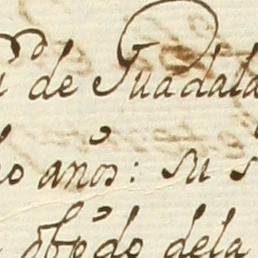 de Guadala
años: su
obpdo dela